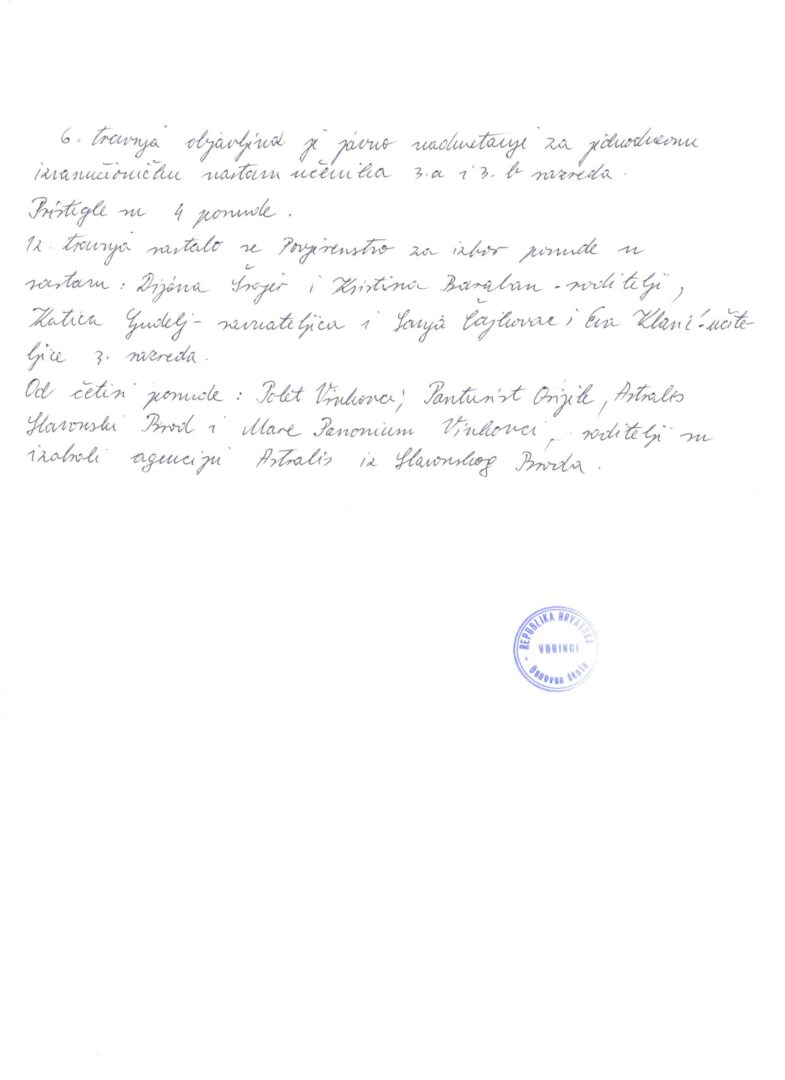 6. travnja objavljeno je javno nadmetanje za jednodnevnu
izvanučioničku nastavu učenika 3.a i 3.b razreda.
Pristigle su 4 ponude.
12. travnja sastalo se Povjerenstvo za izbor ponude u
sastavu: Dijana i Kristina Baraban - roditelji,
Katica Gudelj - ravnateljica i Sanja Čajkovac i Eva Klarić - učite-
ljice 3. razreda.
Od četiri ponude: Polet Vinkovci, Panturist Osijek, Astralis
Slavonski Brod i Mare Panonium Vinkovci, roditelji su
izabrali agenciju Astralis iz Slavonskog Broda.
REPUBLIKA HRVATSKA
VOĐINCI
Osnovna škola